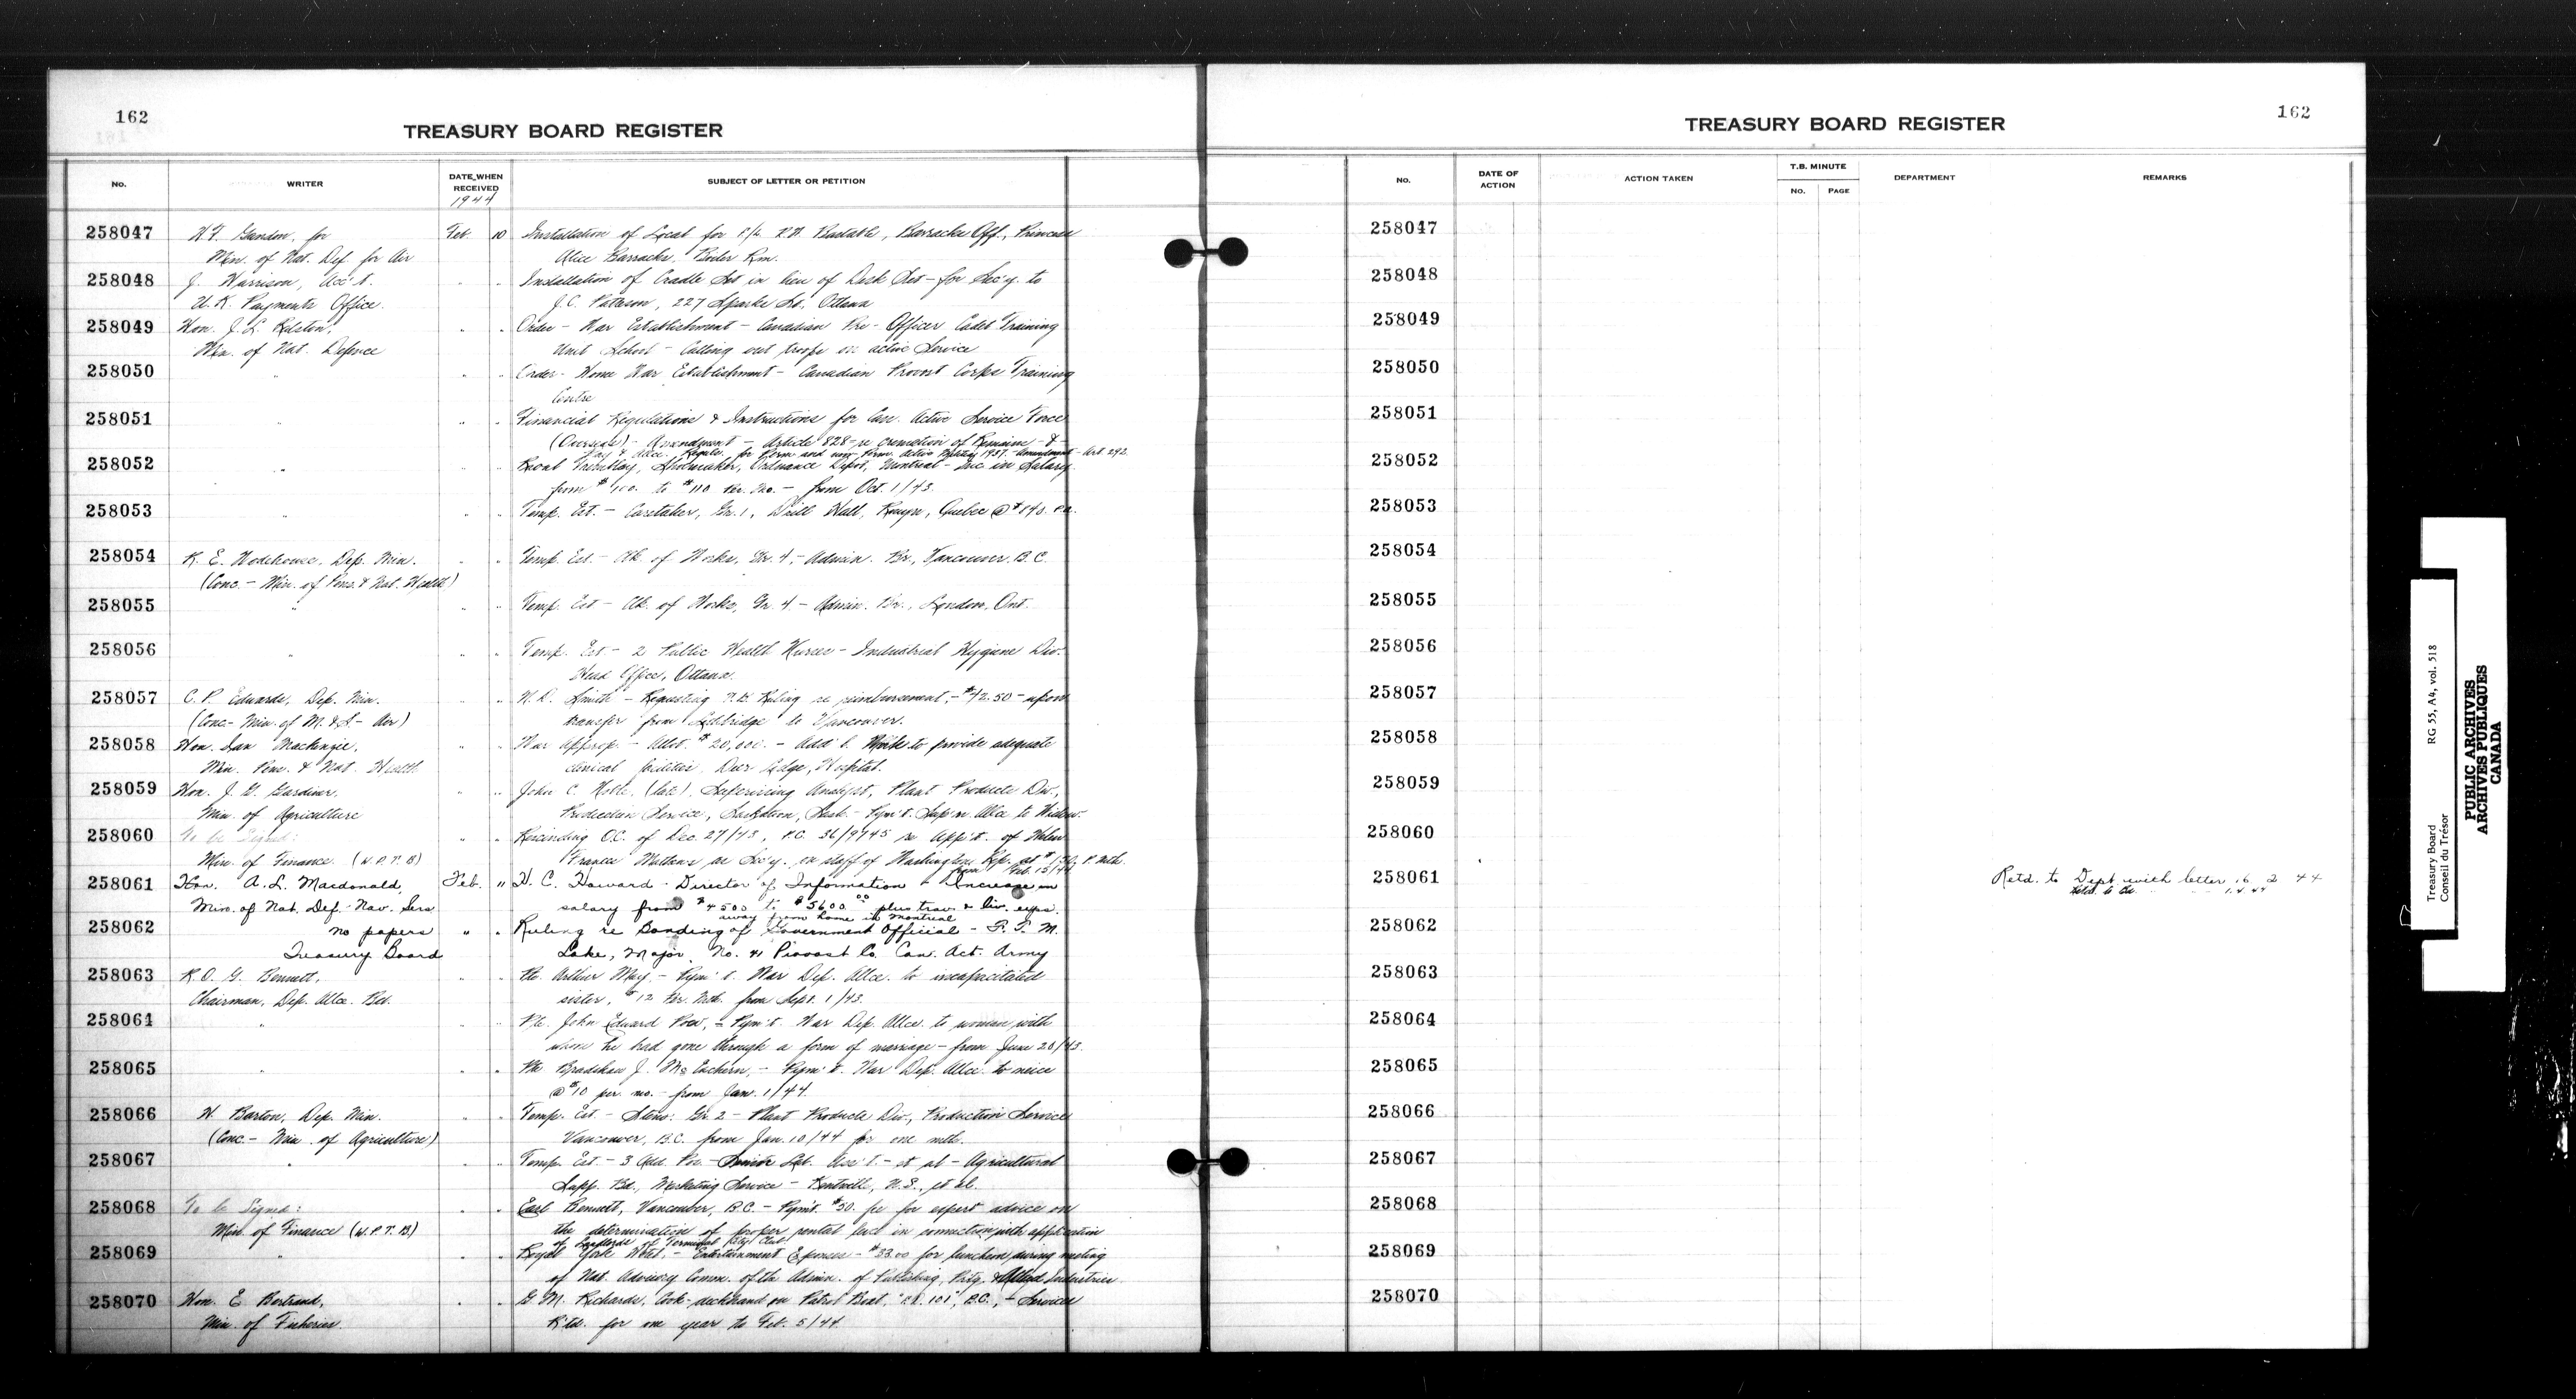 162
TREASURY BOARD REGISTER
No.
WRITER
DATE WHEN RECEIVED
1944
SUBJECT OF LETTER OR PETITION
258047 for Feb. 10 Installation of Local for Barracks Off., Princess
Min. of Nat. Def. for Air Alice Barracks, Boiler Rm.
258048 J. Harrison, Acc't. " " Installation of Cradle Set in lieu of Desk Set - for Sec'y. to
U.K. Payments Office. J.C. Pateson, 227 Sparks St. Ottawa
258049 Hon. J. L. Ralston, " " Order - War Establishment - Canadian Pre-Officer Cadet Training
Min. of Nat. Defence Unit School - Calling out troops on active Service
258050 " " " Order - Home War Establishment - Canadian Provost Corps Training
Centre
258051 " " " Financial Regulations & Instructions for Can. Active Service Force
(Overseas) - Amendment - Article 828 - re cremation of Remains - &
Pay & Allce. Regulns. for Perm. and non-Perm. Active Militia, 1937 - Amendment - Art. 292.
258052 " " " Tremblay, Shoemaker, Ordnance Depot, Montreal - Inc. in Salary
from $100. to $110 per. mo. - from Oct. 1/43.
258053 " " " Temp. Est. - Caretaker, Gr. 1, Drill Hall, Rouyn, Quebec @ p.a.
258054 R. E. Wodehouse, Dep. Min. " " Temp. Est - Clk. of Works, Gr. 4 - Admin. Br., Vancouver, B.C.
(Conc. - Min. of Pens. & Nat. Health)
258055 " " " Temp. Est - Clk. of Works, Gr. 4 - Admin. Br., London, Ont.
258056 " " " Temp. Est - 2 Public Health Nurses - Industrial Hygiene Div.
Head Office, Ottawa.
258057 C. P. Edwards, Dep. Min. " " Smith - Requesting T.B. Ruling re reimbursement - $12.50 - upon
(Conc - Min. of M. & S. - Air) transfer from Lethbridge to Vancouver.
258058 Hon. Ian Mackenzie, " " War Approp. - Allot. $20,000. - Add'l. Work to provide adequate
Min. Pens. & Nat. Health clinical facilities Deer Lodge, Hospital.
258059 Hon. J. G. Gardiner, " " John C. Noble, (late), Supervising Analyst, Plant Products Div.,
Min. of Agriculture Production Service, Saskatoon, Sask. - Pym't. Sup'n. Allce to Widow.
258060 To be Signed: " " Rescinding O.C. of Dec. 27/43, P.C. 36/9745 re App't. of Helen
Min. of Finance (W.P.T.B) Frances as Sec'y. on staff of Washington Rep. at P. Mth.
from Feb. 15/44
258061 Hon. A. L. Macdonald, Feb. 11 H. C. Howard - Director of Information - Increase in
Min. of Nat. Def. Nav. Serv salary from $4500 to $5600.00 plus trav. & liv. exps.
away from home in Montreal
258062 no papers " " Ruling re Bonding of Government Official -
Treasury Board Lake, Major, No. 41 Provost Co. Can. Act. Army
258063 R. O. G. Bennett, " " Pte. Arthur May - Pym't. War Dep. Allce. to incapacitated
Chairman, Dep. Allce. Bd. sister, $12 Per. Mth. from Sept. 1/43.
258064 " " " Pte. John Edward - Pym't. War Dep. Allce. to woman with
whom he had gone through a form of marriage - from June 20/43.
258065 " " " Pte Bradshaw J. McEachern - Pym't. War Dep. Allce. to neice
@ $10 per. mo. - from Jan. 1/44.
258066 H. Barton, Dep. Min. " " Temp. Est - Steno. Gr. 2 - Plant Products Div., Production Service
(Conc - Min. of Agriculture) Vancouver, B.C. from Jan. 10/44 for one mth.
258067 " " " Temp. Est - 3 Add. Pos. - Senior Lab. Ass't. - et al - Agricultural
Supp. Bd., Marketing Service - Kentville, N.S., et al.
258068 To be Signed: " " Earl Bennett, Vancouver, B.C. - Pym't. $50. fee for expert advice on
Min. of Finance (W.P.T.B.) the determination of proper rental in connection with application
of Landlords of Terminal City Club.
258069 " " " Royal York Hotel - Entertainment Expenses - $33.00 for luncheon during meeting
of Nat. Advisory Comm. of the Admin. of Publishing, Ptg. & Allied Industries
258070 Hon. E. Bertrand, " " G. M. Richards, Cook-deckhand on Patrol Boat, B.C., - Services
Min. of Fisheries. Rtd. for one year to Feb. 5/44.
TREASURY BOARD REGISTER
162
No.
DATE OF ACTION
ACTION TAKEN
T.B. MINUTE
No.
PAGE
DEPARTMENT
REMARKS
258047
258048
258049
258050
258051
258052
258053
258054
258055
258056
258057
258058
258059
258060
258061 Retd. to Dept. with letter 16 2 44
258062
258063
258064
258065
258066
258067
258068
258069
258070
Treasury Board
Conseil du Trésor
RG 55, A4, vol. 518
PUBLIC ARCHIVES
ARCHIVES PUBLIQUES
CANADA